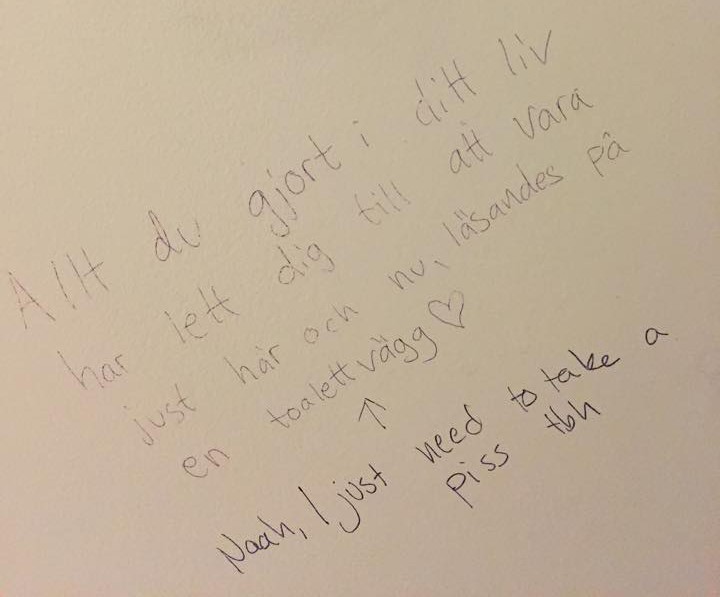 Allt du gjort i ditt liv
har lett dig till att vara
just här och nu, läsandes på
en toalettvägg ♡
↑
Naah, I just need to take a
piss tbh